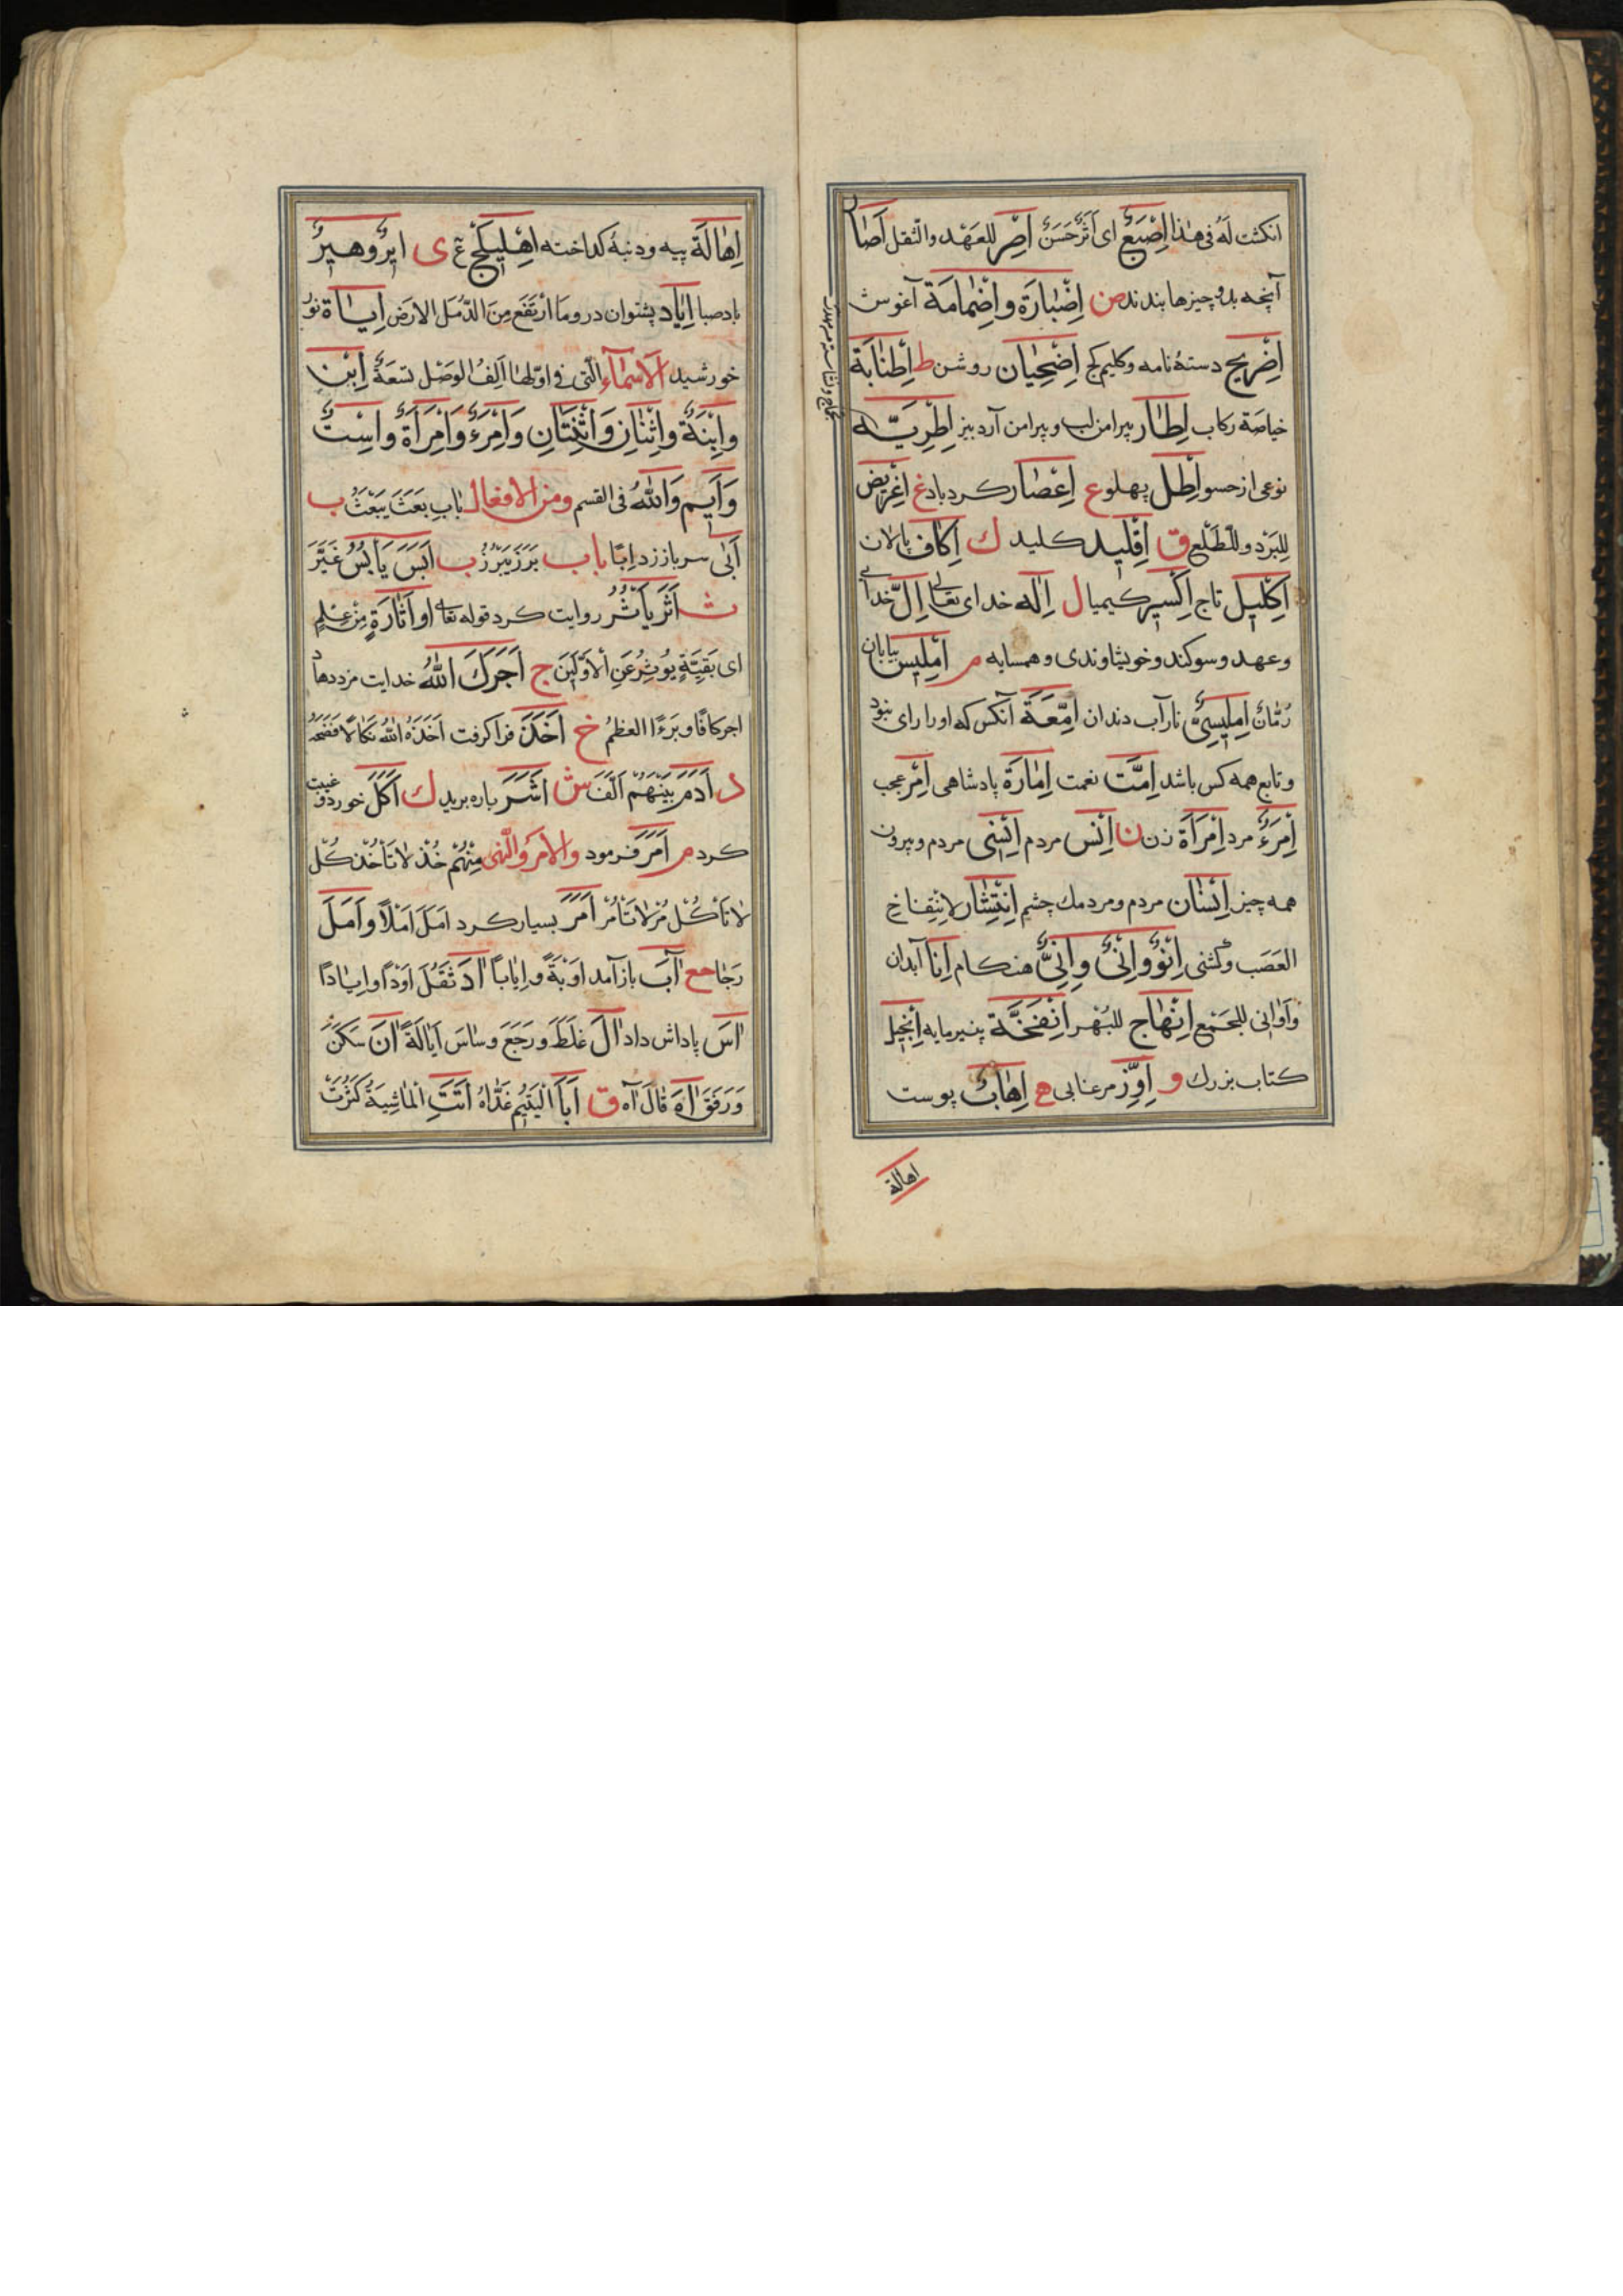 انكشت لَهُ فى هٰذا اِصْبَعٌ اى اَثَرٌ حَسَنٌ اِصْر للعَهْد والثقل اَصَار
آنچه بدو چيزها بندند ض اِضْبَارَة واِضْمَامَة آغوش
اِضْرِيج دستهٔ نامه وكليم كج اِضْحِيَان روشن ط اِطْنَابَة
خياصَة ركاب اِطَار پيرامن لب وپيرامن آردبيز اِطْرِيَّه
نوعى از حسو اِطْل پهلو ع اِعْصَار كردباد غ اِغْرِيض
لِلبَرْد وللطَلْع ق اِقْلِيد كليد ك اِكَاف پالان
اِكْلِيل تاج اِكْسِير كيميا ل اِلٰه خداى تعالى اِلّ خداى
وعهد وسوكند وخويشاوندى وهمسايه م اِمْلِيس بيابان
رُمَّانٌ اِمْلِيسِىٌّ نار آب دندان اِمَّعَة آنكس كه اورا راى نبود
وتابع همه كس باشد اِمَّت نعمت اِمَارَة پادشاهى اِمْر عجب
اِمْرَءٌ مرد اِمْرَاَة زن ن اِنْس مردم اِنْسِى مردم وبيرون
همه چيز اِنْسَان مردم ومردمك چشم اِنْتِشَار لاِنْتِفاخ
العَصَب وكشنى اِنْوٌ واِنْىٌ وَاِنىٌّ هنكام اِنَا آبدان
وَاَوَانى للجَمْع اِنْهَاج للبُهْر اِنْفَحَّة پنيرمايه اِنْجِيل
كتاب بزرك و اِوَزّ مرغابى ه اِهَاب پوست
اهالة
اِهَالَة پيه ودنبهٔ كداخته اِهْلِيلَج ع ى ايرٌ وهيرٌ
باد صبا اِيَاد پشتوان در وما اَرْتَفَع مِنَ الرَّمل الارض اِيَاة نور
خورشيد الاسْمَآء الّتى فى اوّلها اَلِفُ الوَصْل تسعَةٌ اِبْن
وابْنَةٌ واثْنَانِ وَاثْنَتَانِ وَامْرَءٌ وَامْرَاَةٌ واسْتٌ
وَاَيم وَاللّٰهُ فى القسم ومن الافعال بَابِ بَعَثَ يَبْعَثُ ب
اَبٰى سر باز زد اِبًا باب بَرَزَ يَبْرُزُ ب اَبَسَ يَاْبُسُ غَيَّرَ
ث اَثَرَ يَاْثُرُ روايت كرد قوله تعالى او اَثَارَةٍ مِنْ عِلْمٍ
اى بَقِيَّةٍ يُوثَرُ عَنِ الْاَوَّلِينَ ج اَجَرَكَ اللّٰهُ خدايت مزد دهاد
اجركافًا وبَرءًا العظمُ خ اَخَذَ فراكرفت اَخَذَهُ اللّٰهُ نكَالًا فَضَحَهُ
د اَدَمَ بَيْنَهُمْ اَلَّفَ ش اَشَرَ پاره بريد ك اَكَلَ خورد وغيبت
كرد م اَمَرَ فرمود والامرُ والنَّهى مِنْهُمْ خُذْ لَا تَاْخُذْ كُلْ
لَا تَاْكُلْ مُرْ لَا تَاْمُرْ اَمَرَ بسيار كرد اَمَلَ اَمْلًا وَاَمَلَ
رَجَا مع اٰبَ باز آمد اَوْبَةً وَاِيَابًا اٰدَ ثَقُلَ اَوْدًا واِيَادًا
اٰسَ پاداش داد اٰلَ غَلَظَ ورَجَعَ وسَاسَ اِيَالَةً اٰنَ سَكَنَ
وَرَفَقَ اٰهَ قَالَ آه ق اَبَا اليَتيمَ غَذَاهُ اَتَتِ الْمَاشِيَةُ كَثُرَتْ